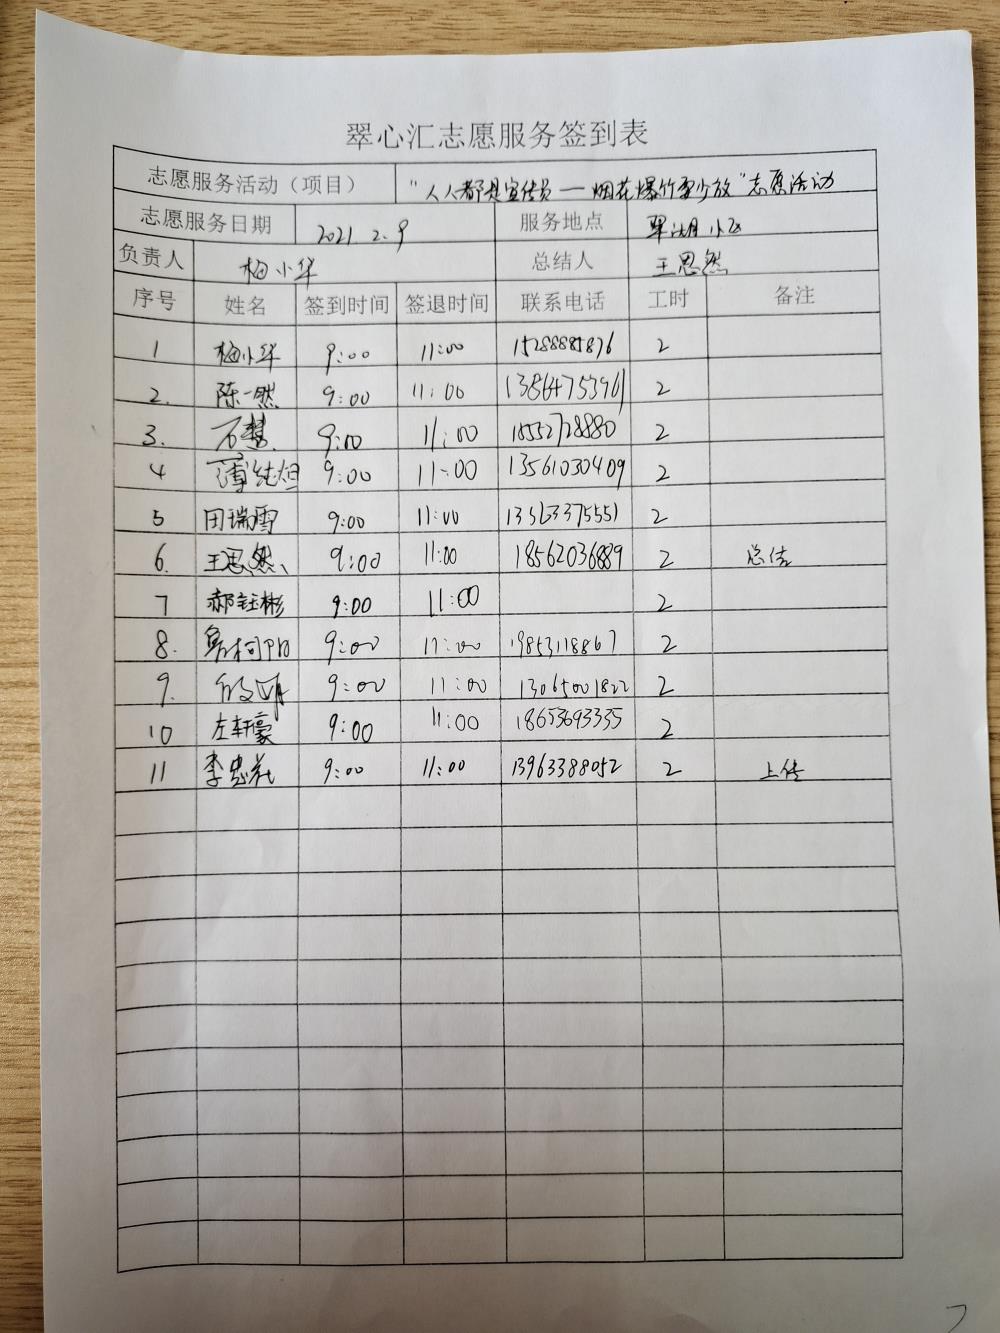 翠心汇志愿服务签到表
志愿服务活动（项目） “人人都是宣传员——烟花爆竹要少放”志愿活动
志愿服务日期 2021.2.9 服务地点 翠湖小区
负责人 梅小华 总结人 王思然
序号 姓名 签到时间 签退时间 联系电话 工时 备注
1 梅小华 9:00 11:00 15288885876 2
2. 陈一然 9:00 11:00 13864753961 2
3. 石慧 9:00 11:00 18552728880 2
4 薄纯烜 9:00 11:00 13561030409 2
5 田瑞雪 9:00 11:00 13563375551 2
6. 王思然 9:00 11:00 18562036889 2 总结
7 郝钰彬 9:00 11:00 2
8. 柯阳 9:00 11:00 19853118867 2
9. 9:00 11:00 13065001822 2
10 左轩豪 9:00 11:00 18653693335 2
11 李忠花 9:00 11:00 13963388052 2 上传